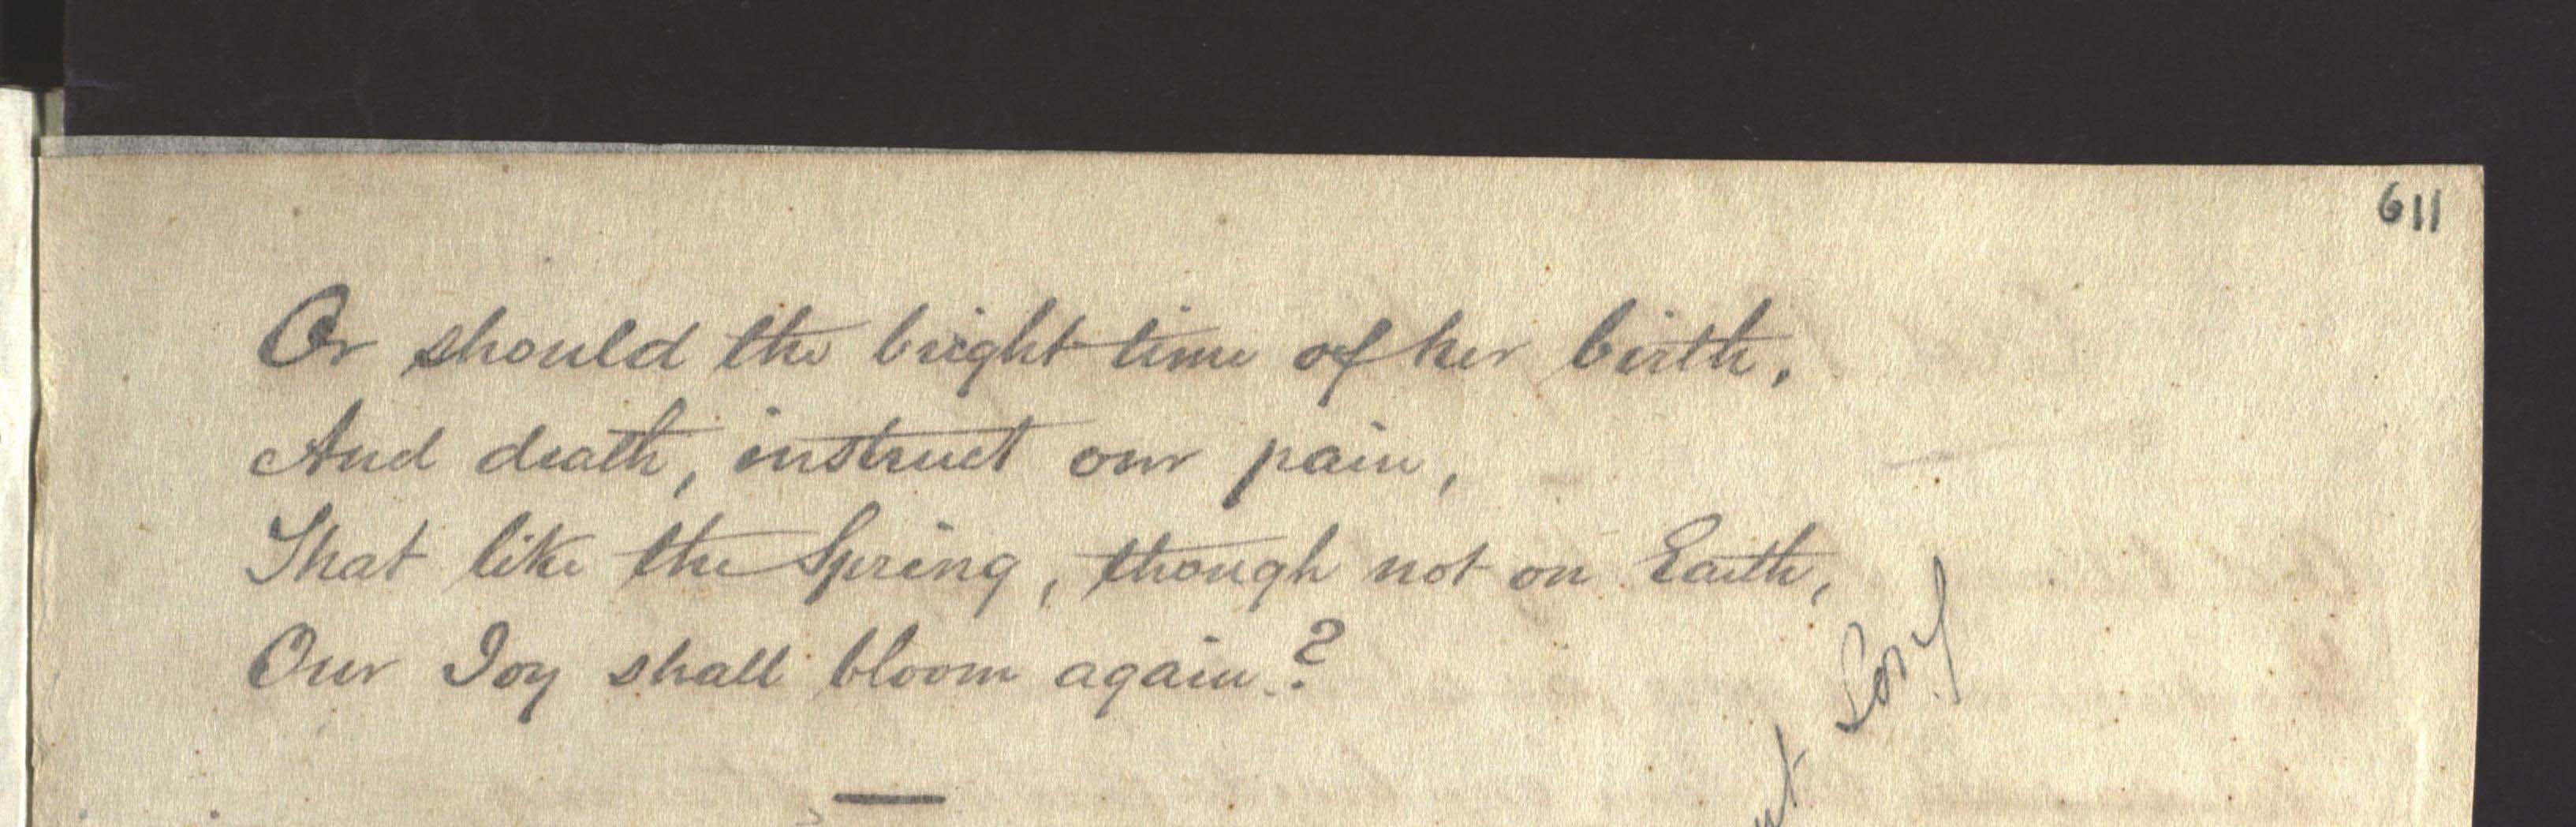 611
Or should the bright time of her birth,
And death, instruct our pain,
That like the Spring, though not on Earth,
Our Joy shall bloom again?